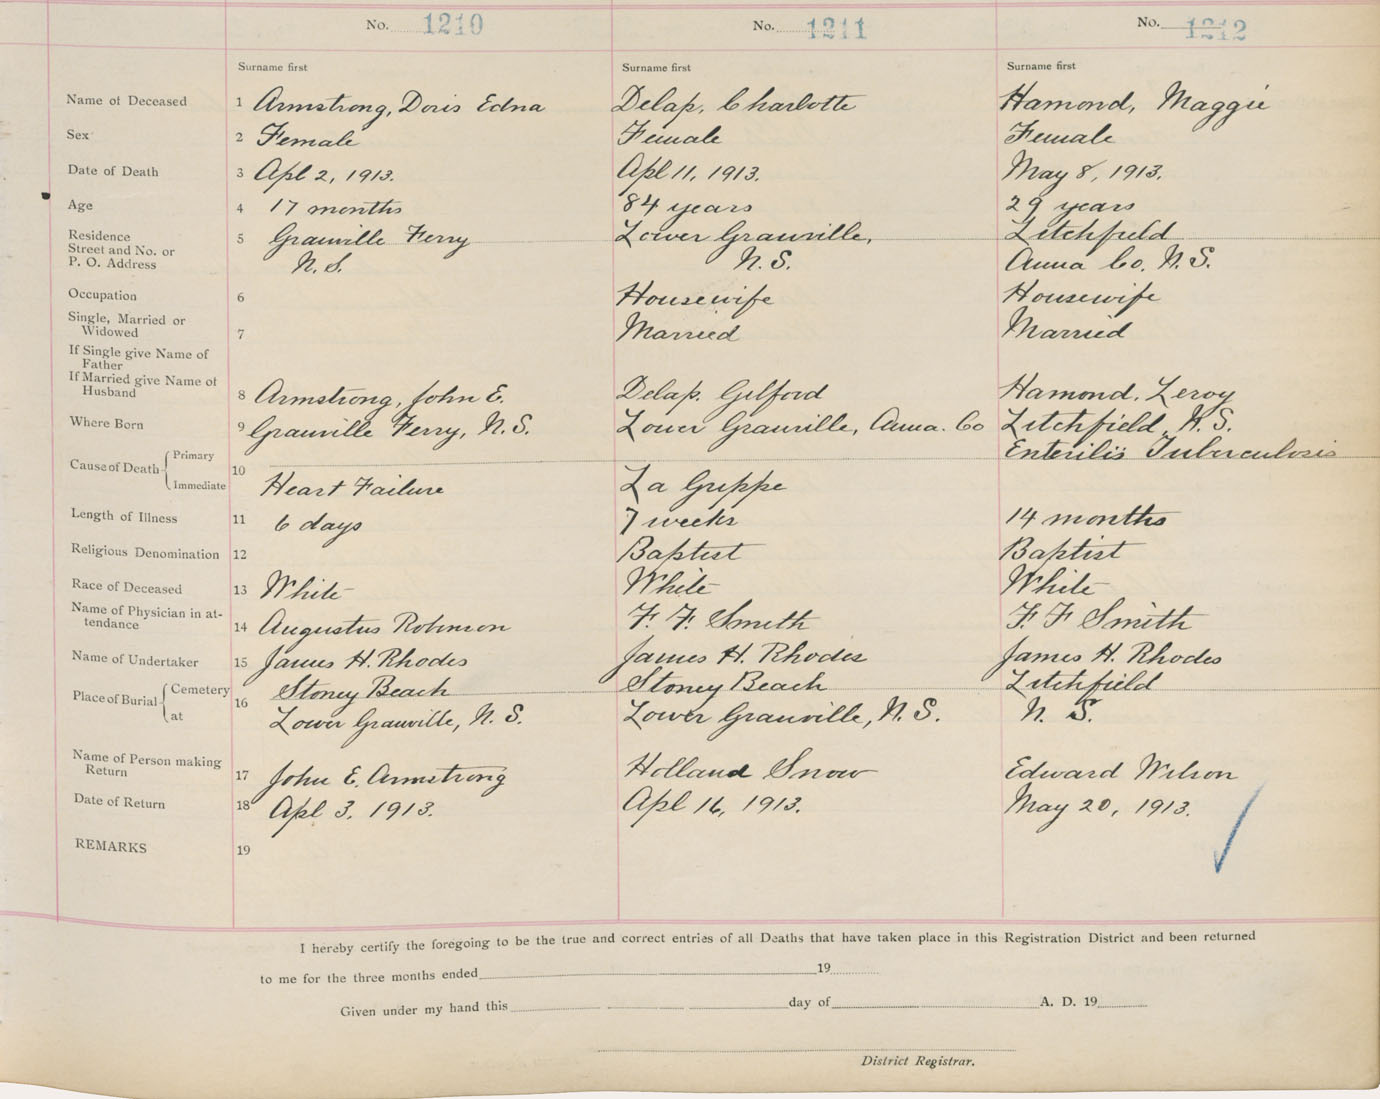 No. 1210 No. 1211 No. 1212
Surname first Surname first Surname first
Name of Deceased 1 Armstrong, Doris Edna Delap, Charlotte Hamond, Maggie
Sex 2 Female Female Female
Date of Death 3 Apl 2, 1913. Apl 11, 1913. May 8, 1913.
Age 4 17 months 84 years 29 years
Residence 5 Granville Ferry Lower Granville, Litchfield
Street and No. or
P. O. Address N. S. N. S. Anna Co. N. S.
Occupation 6 Housewife Housewife
Single, Married or
Widowed 7 Married Married
If Single give Name of
Father
If Married give Name of
Husband 8 Armstrong, John E. Delap. Gilford Hamond. Leroy
Where Born 9 Granville Ferry, N. S. Lower Granville, Anna. Co Litchfield, N. S.
Cause of Death Primary 10 Enterilis Tuberculosis
Immediate Heart Failure La Grippe
Length of Illness 11 6 days 7 weeks 14 months
Religious Denomination 12 Baptist Baptist
Race of Deceased 13 White White White
Name of Physician in at-
tendance 14 Augustus Robinson F. F. Smith F. F Smith
Name of Undertaker 15 James H. Rhodes James H. Rhodes James H. Rhodes
Place of Burial Cemetery 16 Stoney Beach Stoney Beach Litchfield
at Lower Granville, N. S. Lower Granville, N. S. N. S.
Name of Person making
Return 17 John E. Armstrong Holland Snow Edward Wilson
Date of Return 18 Apl 3, 1913. Apl 16, 1913. May 20, 1913.
REMARKS 19
I hereby certify the foregoing to be the true and correct entries of all Deaths that have taken place in this Registration District and been returned
to me for the three months ended 19
Given under my hand this day of A. D. 19
District Registrar.